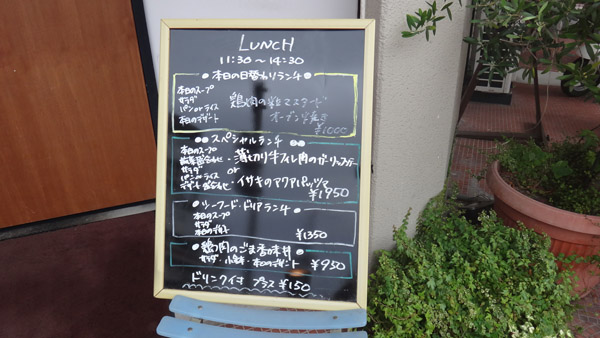 LUNCH
11:30～14:30
本日の日替わりランチ
本日のスープ
サラダ
パンorライス
本日のデザート
鶏肉の粒マスタード
オーブン焼き
¥1000
スペシャルランチ
本日のスープ
前菜盛合わせ
サラダ
パンorライス
デザート盛合わせ
薄切り牛フィレ肉のガーリックソテー
or
イサキのアクアパッツァ
¥1950
シーフードドリアランチ
本日のスープ
サラダ
¥1350
鶏肉のごま香味丼
サラダ・小鉢・本日のデザート ¥950
ドリンク付 プラス ¥150